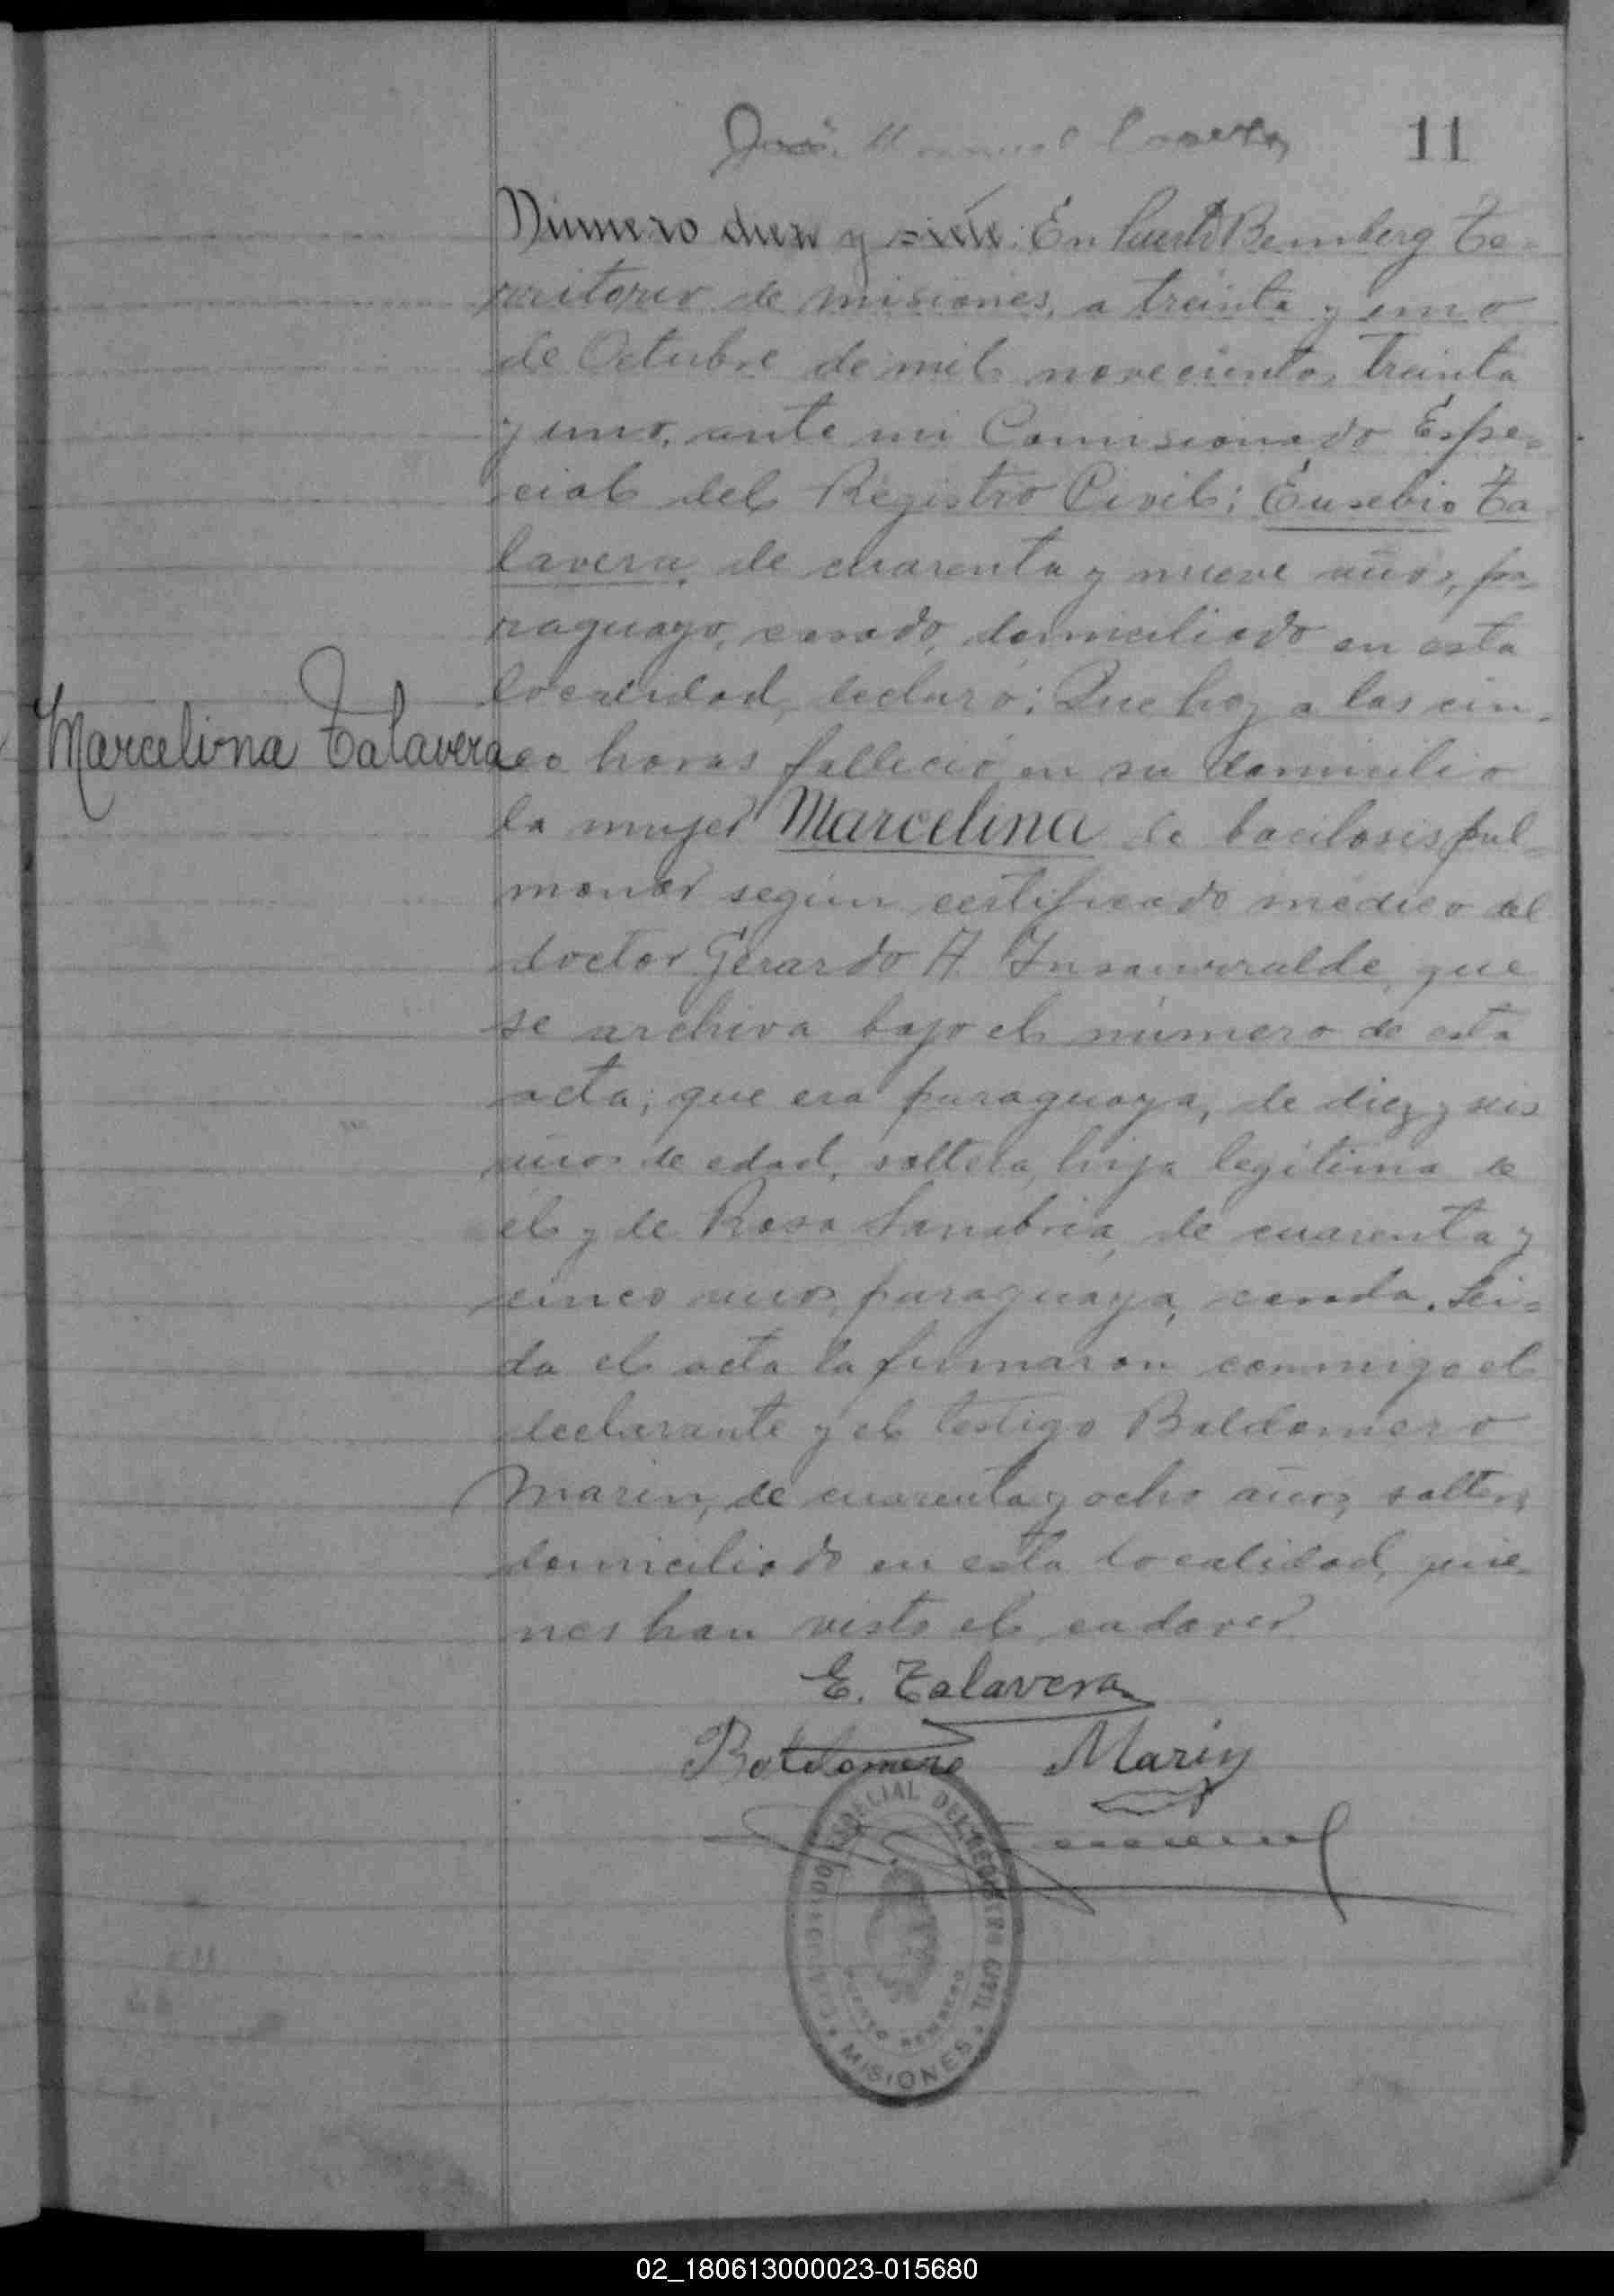 José Manuel
11
Número diez y siete: En Puerto Bemberg Te-
rritorio de misiones, a treinta y uno
de Octubre de mil novecientos treinta
y uno, ante mi Comisionado Espe-
cial del Registro Civil; Eusebio Ta
lavera, de cuarenta y nueve años, pa-
raguayo, casado, domiciliado en esta
localidad, declaró: Que hoy a las cin-
Marcelina Talavera
co horas falleció en su domicilio
la mujer Marcelina de bacilosis pul-
monar según certificado médico del
doctor Gerardo A. Insaurralde, que
se archiva bajo el número de esta
acta; que era paraguaya, de diez y seis
años de edad, soltera, hija legítima de
él y de Rosa Sanabria, de cuarenta y
cinco años, paraguaya, casada. Leí-
da el acta la firmaron conmigo el
declarante y el testigo Baldomero
Marin, de cuarenta y ocho años, soltero,
domiciliado en esta localidad, quie-
nes han visto el cadaver
E. Talavera
Baldomero Marin
COMISIONADO ESPECIAL DEL REGISTRO CIVIL
PUERTO BEMBERG
MISIONES
02_180613000023-015680